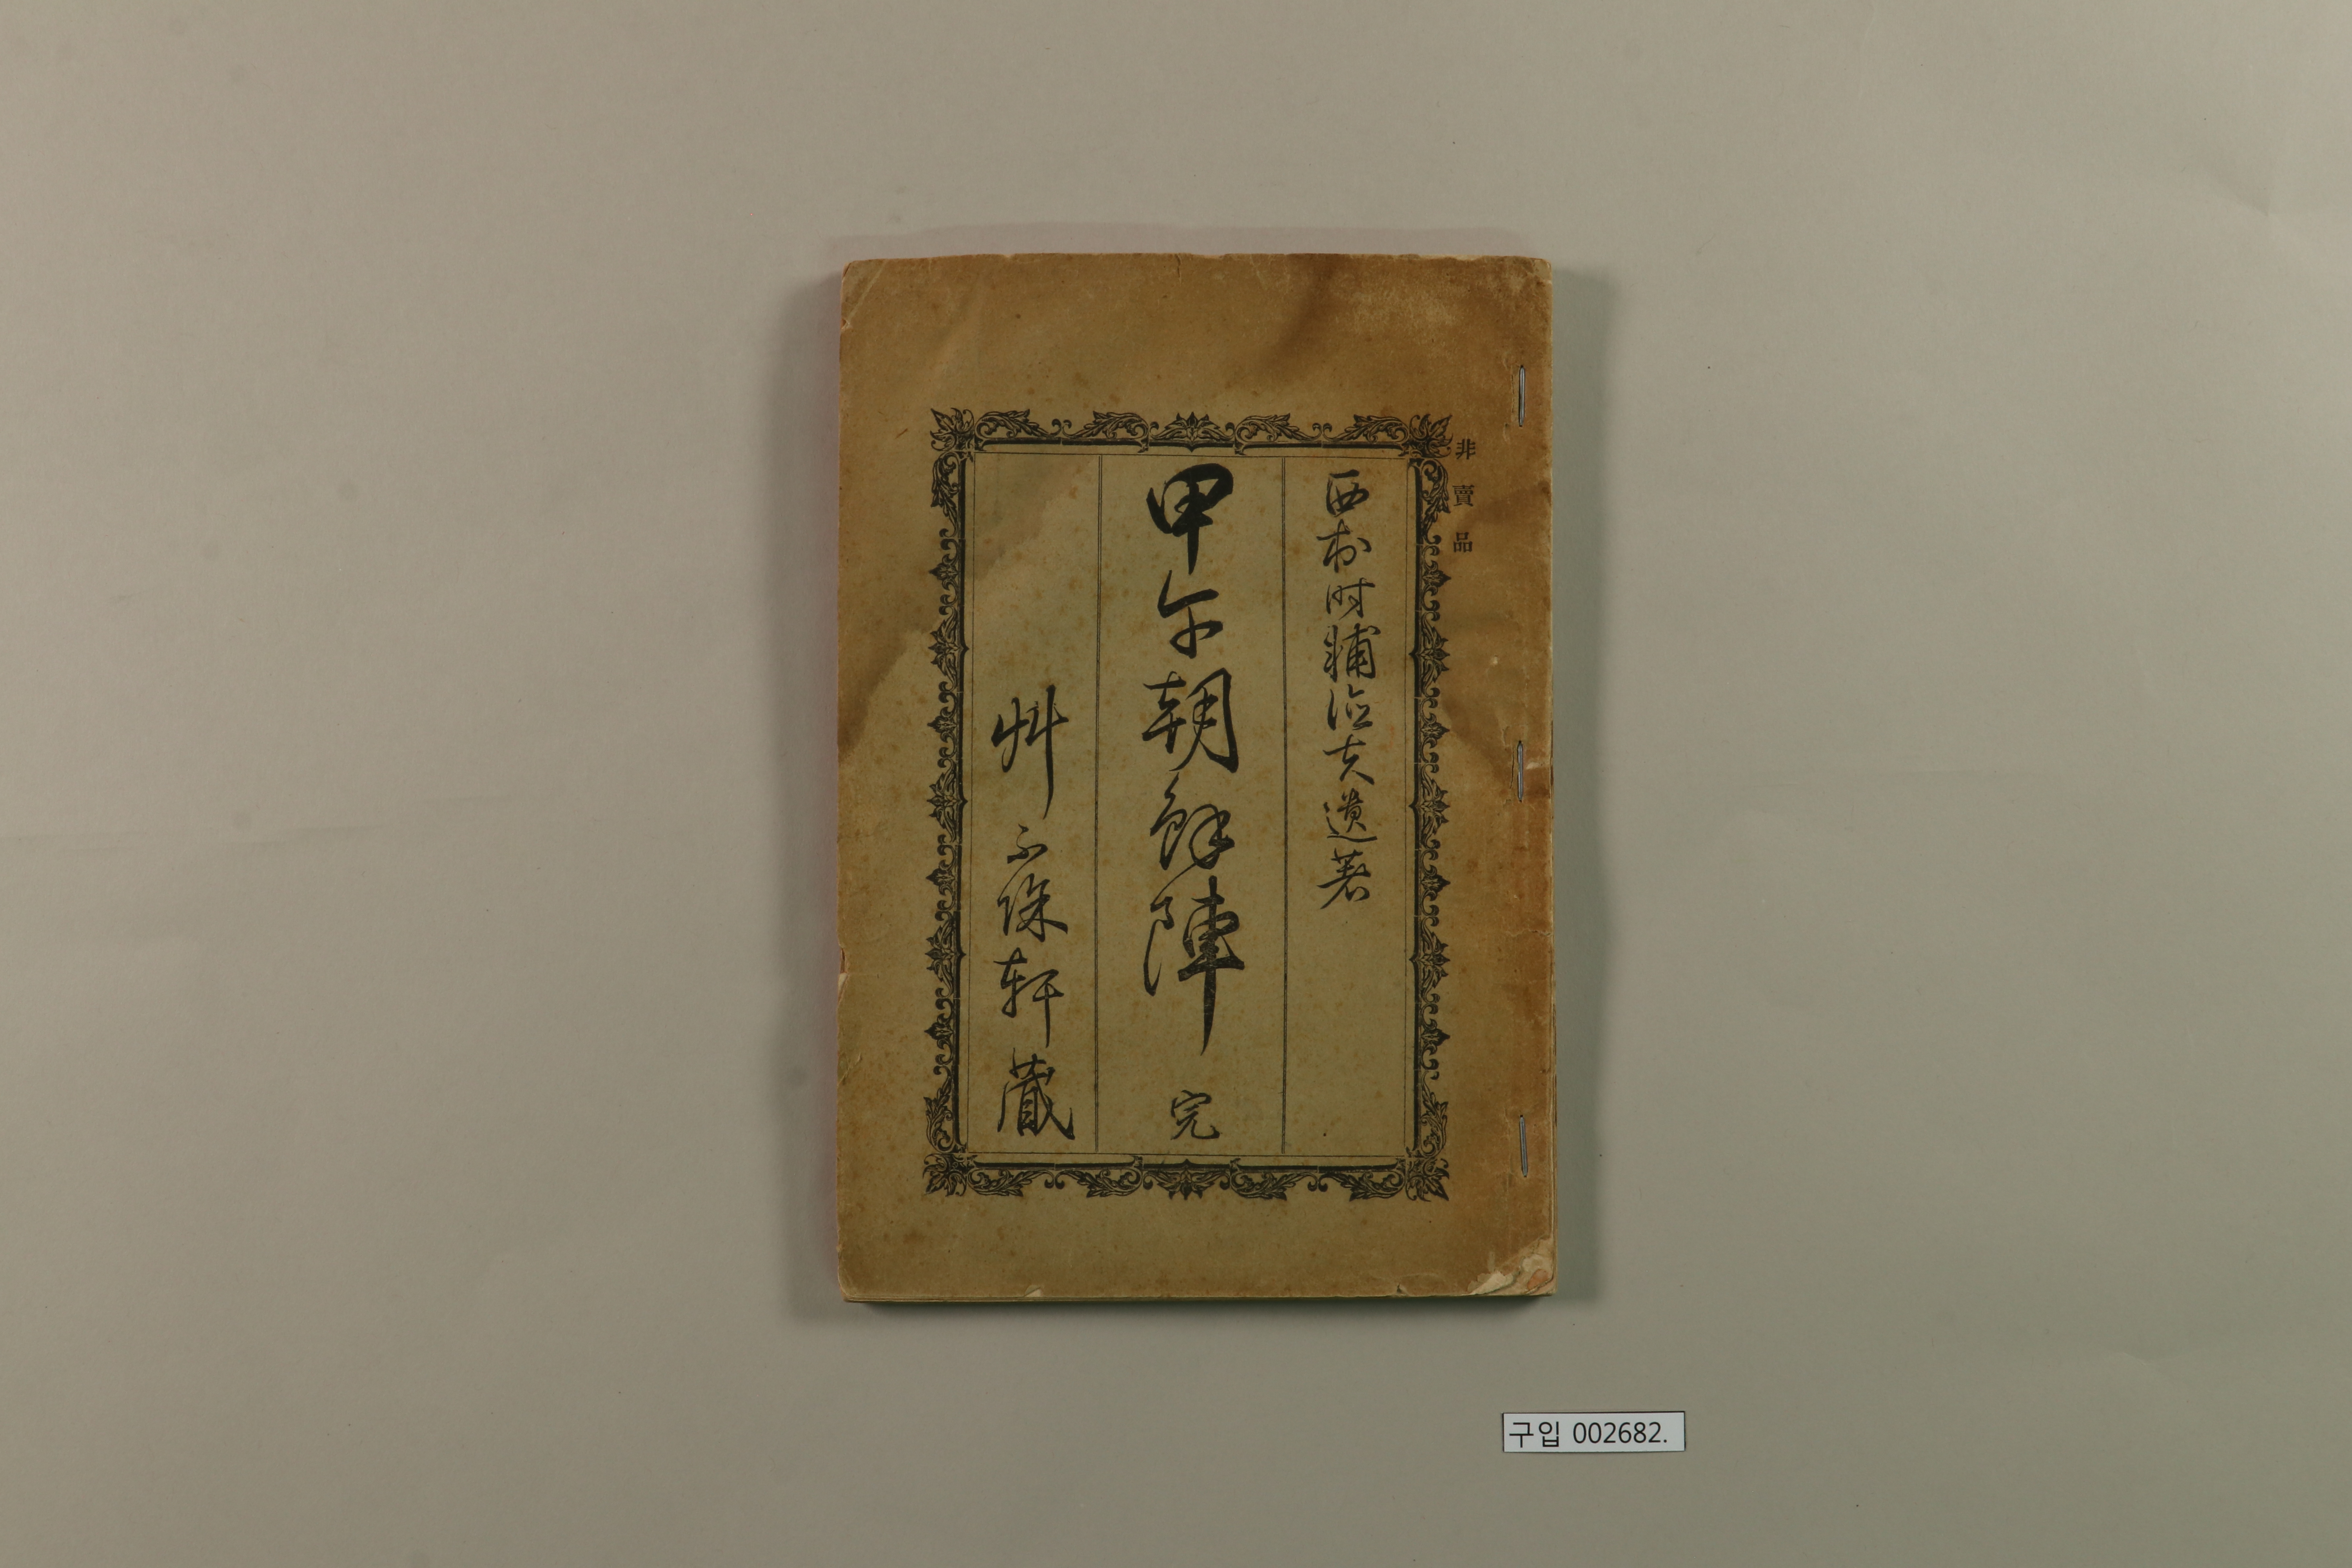 非賣品
西村時輔夫遺著
甲午朝鮮陣 完
艸不除軒藏
구입 002682.